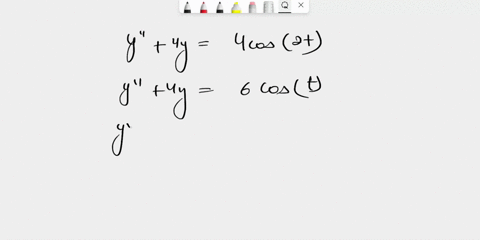 y" + 4y = 4cos(2t)
y" + 4y = 6 cos(t)
y'